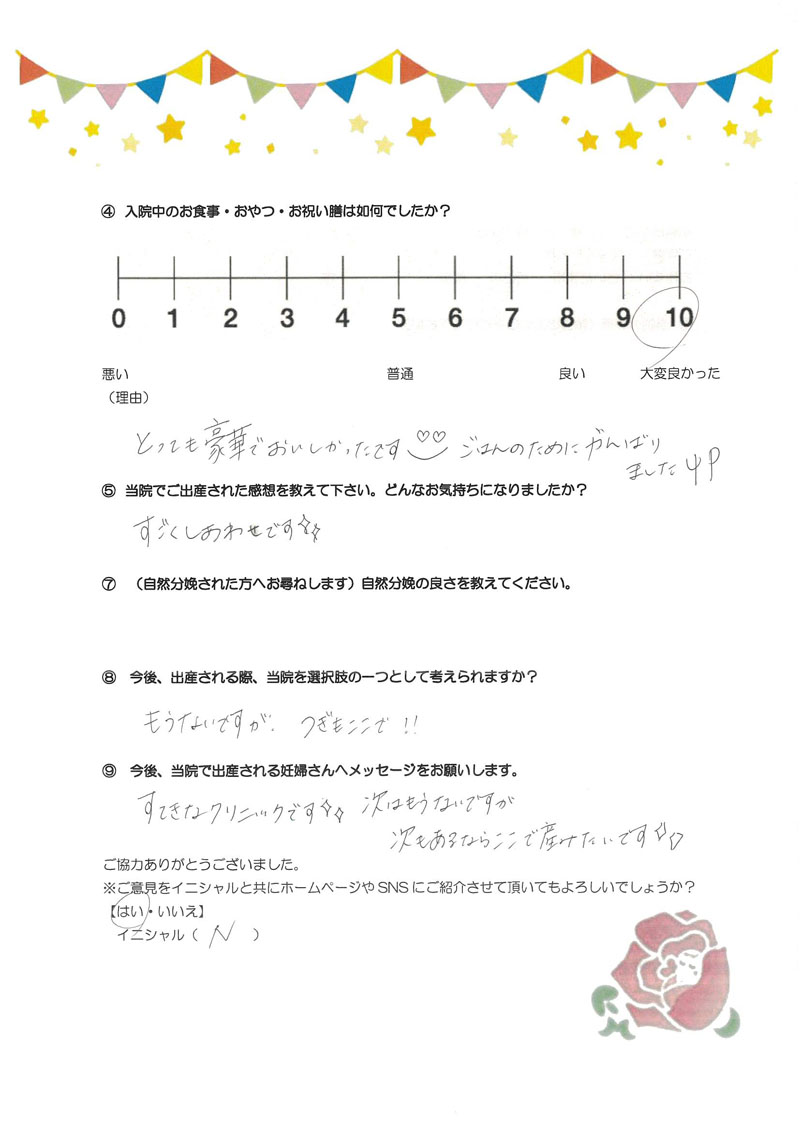 ④ 入院中のお食事・おやつ・お祝い膳は如何でしたか？
0 1 2 3 4 5 6 7 8 9 10
悪い 普通 良い 大変良かった
（理由）
とっても豪華でおいしかったです♡♡ ごはんのためにがんばり
ました
⑤ 当院でご出産された感想を教えて下さい。どんなお気持ちになりましたか？
すごくしあわせです
⑦ （自然分娩された方へお尋ねします）自然分娩の良さを教えてください。
⑧ 今後、出産される際、当院を選択肢の一つとして考えられますか？
もうないですが、つぎもここで!!
⑨ 今後、当院で出産される妊婦さんへメッセージをお願いします。
すてきなクリニックです 次はもうないですが
次もあるならここで産みたいです
ご協力ありがとうございました。
※ご意見をイニシャルと共にホームページやSNSにご紹介させて頂いてもよろしいでしょうか？
【はい・いいえ】
イニシャル（ N ）